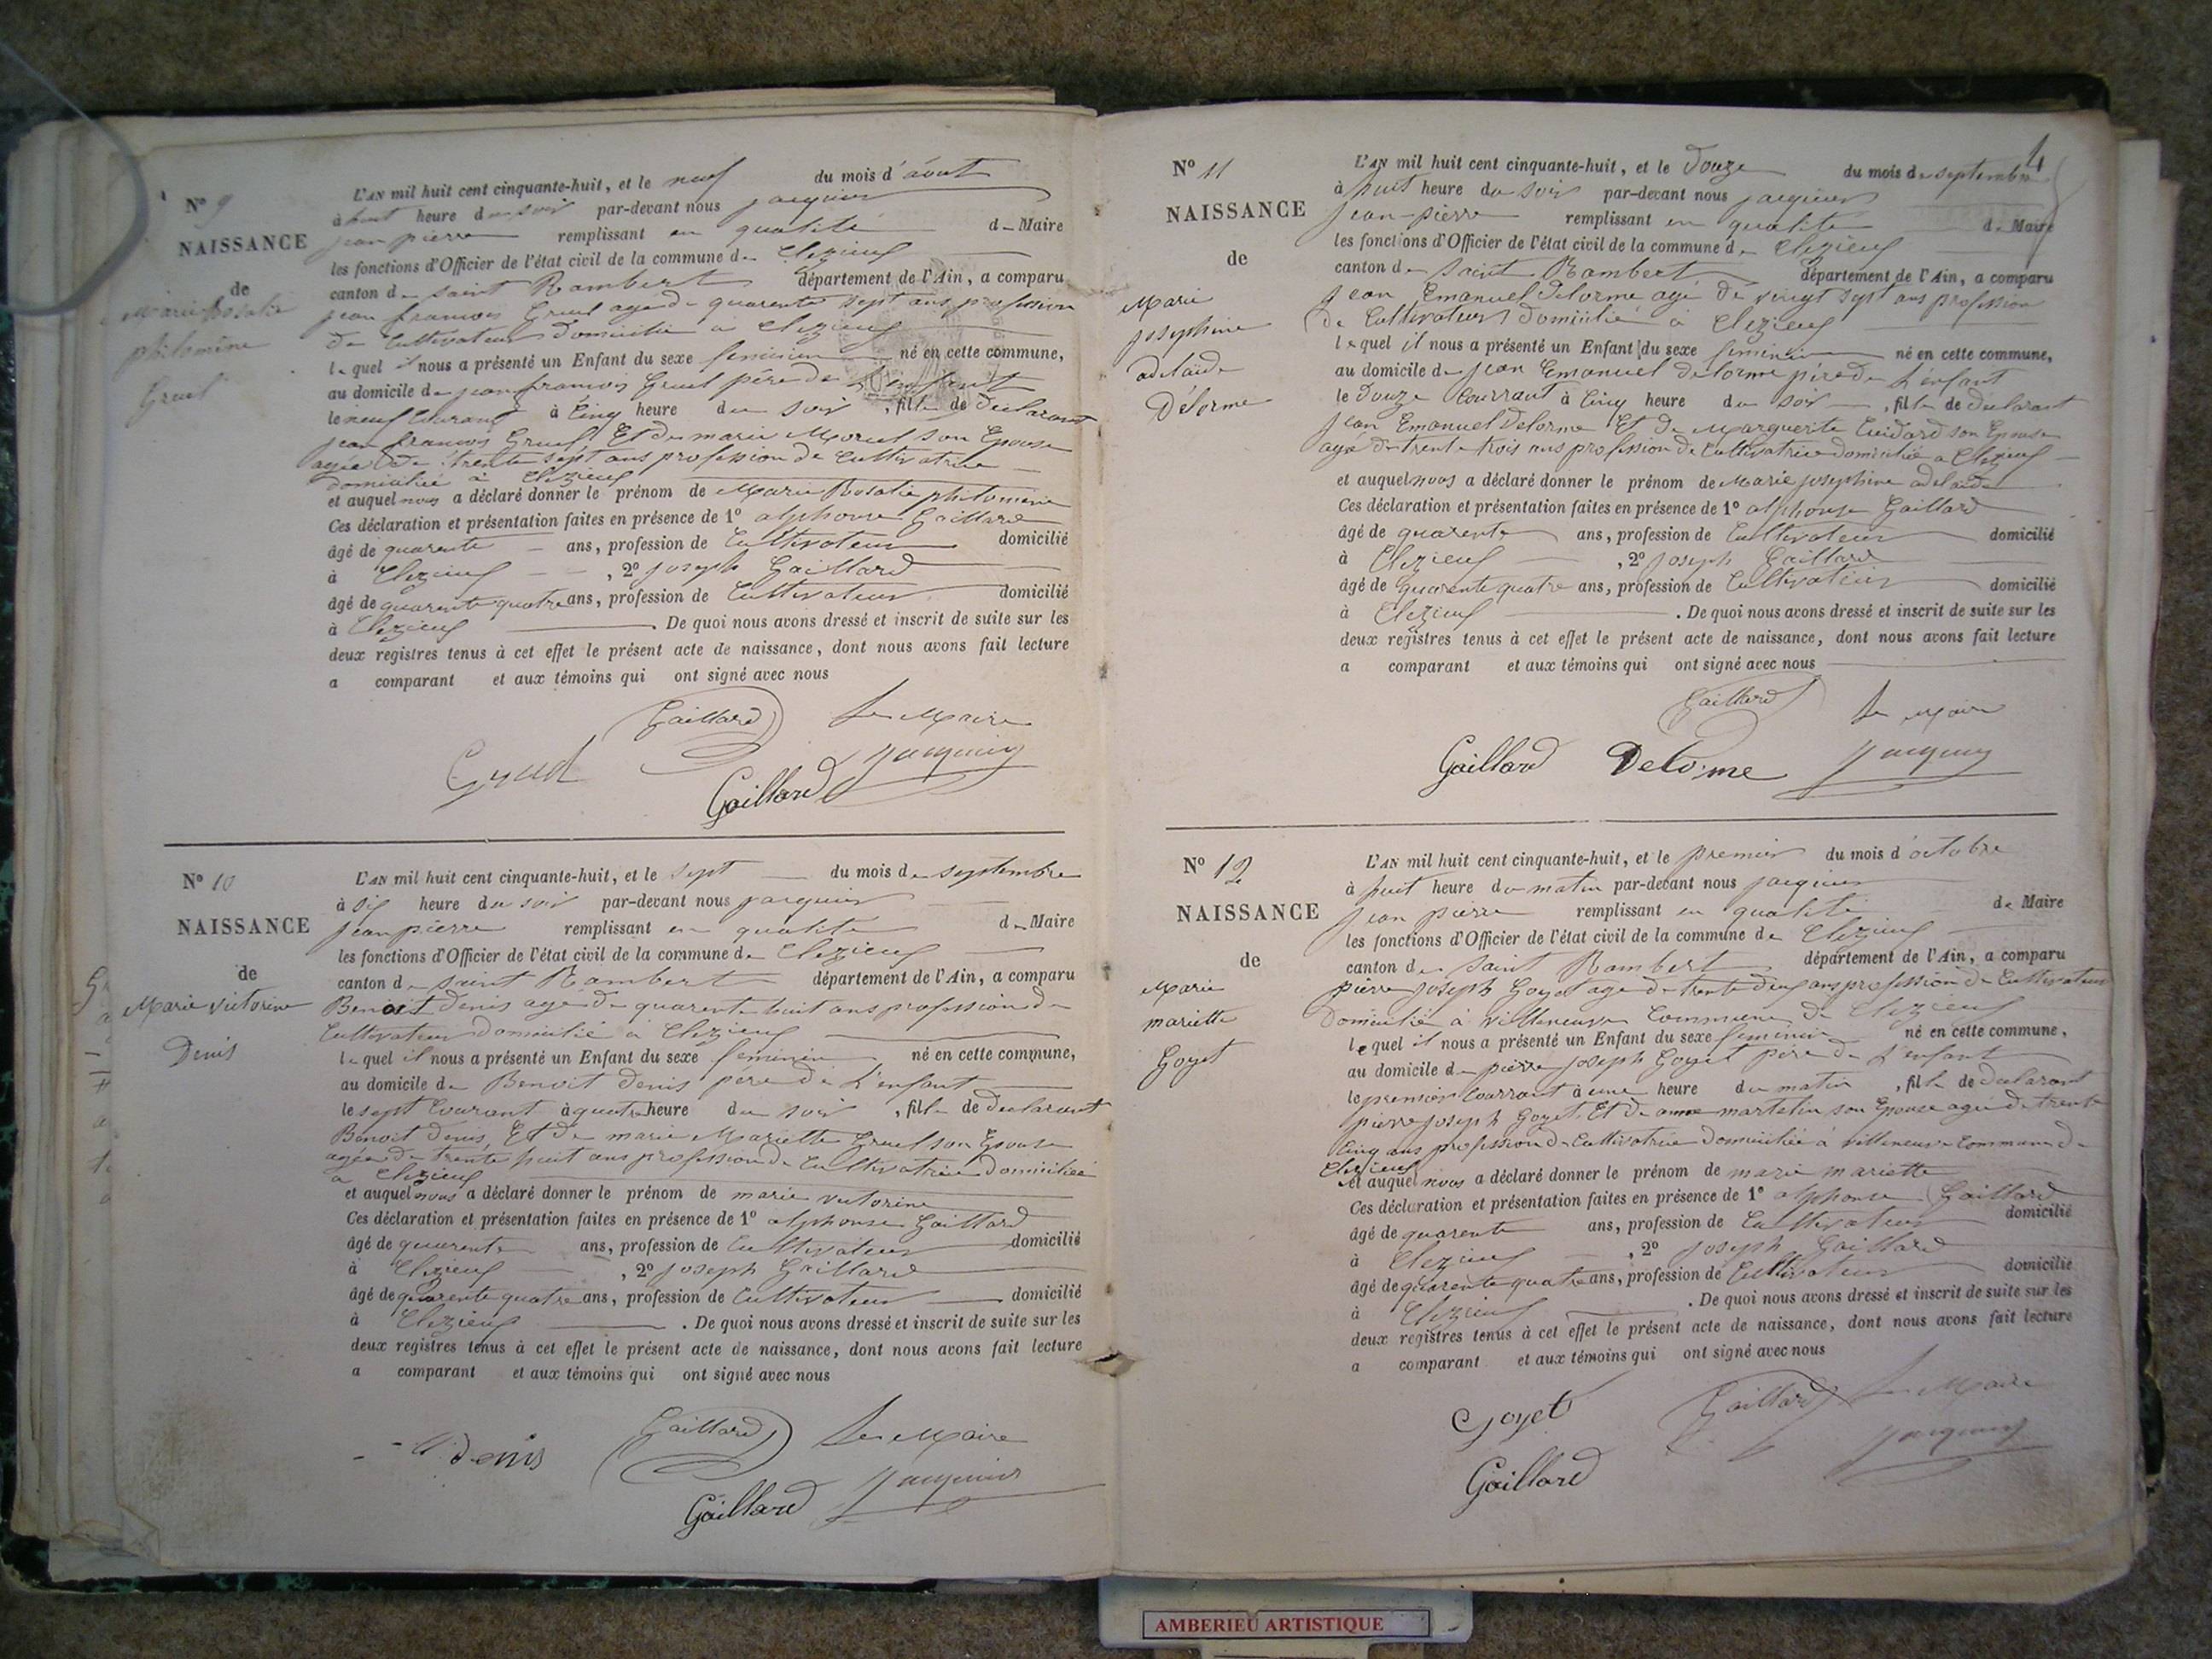 N° 9
NAISSANCE
de
Marie Rosalie
philomène
Gruel
L'AN mil huit cent cinquante-huit, et le neuf du mois d'avout
à huit heure du soir par-devant nous jacquier
jean pierre remplissant en qualité de Maire
les fonctions d'Officier de l'état civil de la commune de Clezieuf
canton de saint Rambert département de l'Ain, a comparu
jean francois Gruel agé de quarente sept ans profession
de Cultivateur domicilié a Clezieuf
lequel il nous a présenté un Enfant du sexe feminien né en cette commune,
au domicile de jean francois Gruel père de L'enfant
le neuf Courant à Cinq heure du soir, fille de declarant
jean francois Gruel, Et de marie Morel son Epouse
agée de trente sept ans profession de Cultivatrice
domiciliée à Clezieuf
et auquel nous a déclaré donner le prénom de Marie Rosalie philomene
Ces déclaration et présentation faites en présence de 1° alphonse Gaillard
âgé de quarente ans, profession de Cultivateur domicilié
à Clezieuf, 2° joseph Gaillard
âgé de quarente quatre ans, profession de Cultivateur domicilié
à Clezieuf. De quoi nous avons dressé et inscrit de suite sur les
deux registres tenus à cet effet le présent acte de naissance, dont nous avons fait lecture
a comparant et aux témoins qui ont signé avec nous
Gaillard Le Maire
Gruel jacquier
Gaillard
N° 10
NAISSANCE
de
Marie victorine
Denis
L'AN mil huit cent cinquante-huit, et le sept du mois de septembre
à six heure du soir par-devant nous jacquier
jean pierre remplissant en qualité de Maire
les fonctions d'Officier de l'état civil de la commune de Clezieuf
canton de saint Rambert département de l'Ain, a comparu
Benoit Denis agé de quarente huit ans profession de
Cultivateur domicilié à Clezieuf
lequel il nous a présenté un Enfant du sexe feminien né en cette commune,
au domicile de Benoit Denis père de L'enfant
le sept Courant à quatre heure du soir, fille de declarant
Benoit Denis, Et de marie Mariette Gruel son Epouse
agée de trente huit ans profession de Cultivatrice domiciliée
a Clezieuf
et auquel nous a déclaré donner le prénom de marie victorine
Ces déclaration et présentation faites en présence de 1° alphonse Gaillard
âgé de quarente ans, profession de Cultivateur domicilié
à Clezieuf, 2° joseph Gaillard
âgé de quarente quatre ans, profession de Cultivateur domicilié
à Clezieuf. De quoi nous avons dressé et inscrit de suite sur les
deux registres tenus à cet effet le présent acte de naissance, dont nous avons fait lecture
a comparant et aux témoins qui ont signé avec nous
Denis Gaillard Le Maire
Gaillard jacquier
4
N° 11
NAISSANCE
de
Marie
josephine
adelaide
Delorme
L'AN mil huit cent cinquante-huit, et le Douze du mois de septembre
à huit heure du soir par-devant nous jacquier
jean-pierre remplissant en qualité de Maire
les fonctions d'Officier de l'état civil de la commune de Clezieuf
canton de saint Rambert département de l'Ain, a comparu
jean Emanuel Delorme agé de vingt sept ans profession
De Cultivateur Domicilié a Clezieuf
lequel il nous a présenté un Enfant du sexe feminien né en cette commune,
au domicile de jean Emanuel Delorme père de L'enfant
le Douze Courrant à Cinq heure du soir, fille de declarant
jean Emanuel Delorme Et De Marguerite Cuidard son Epouse
agé de trente trois ans profession de Cultivatrice domiciliée a Clezieuf
et auquel nous a déclaré donner le prénom de Marie josephine adelaide
Ces déclaration et présentation faites en présence de 1° alphonse Gaillard
âgé de quarente ans, profession de Cultivateur domicilié
à Clezieuf, 2° joseph Gaillard
âgé de quarente quatre ans, profession de Cultivateur domicilié
à Clezieuf. De quoi nous avons dressé et inscrit de suite sur les
deux registres tenus à cet effet le présent acte de naissance, dont nous avons fait lecture
a comparant et aux témoins qui ont signé avec nous
Gaillard Le Maire
Gaillard Delorme jacquier
N° 12
NAISSANCE
de
Marie
mariette
Goyet
L'AN mil huit cent cinquante-huit, et le premier du mois d'octobre
à huit heure du matin par-devant nous jacquier
jean pierre remplissant en qualité de Maire
les fonctions d'Officier de l'état civil de la commune de Clezieuf
canton de saint Rambert département de l'Ain, a comparu
pierre joseph Goyet age de trente deux ans profession de Cultivateur
Domicilié à villeneuve Commune de Clezieuf
lequel il nous a présenté un Enfant du sexe feminien né en cette commune,
au domicile de pierre joseph Goyet père de L'enfant
le premier Courrant à une heure du matin, fille de declarant
pierre joseph Goyet. Et de anne martelin son Epouse agée de trente
Cinq ans profession de Cultivatrice domiciliée à villeneuve Commune de
Clezieuf
et auquel nous a déclaré donner le prénom de marie mariette
Ces déclaration et présentation faites en présence de 1° alphonse Gaillard
âgé de quarente ans, profession de Cultivateur domicilié
à Clezieuf, 2° joseph Gaillard
âgé de quarente quatre ans, profession de Cultivateur domicilié
à Clezieuf. De quoi nous avons dressé et inscrit de suite sur les
deux registres tenus à cet effet le présent acte de naissance, dont nous avons fait lecture
a comparant et aux témoins qui ont signé avec nous
Goyet Gaillard Le Maire
Gaillard jacquier
AMBERIEU ARTISTIQUE